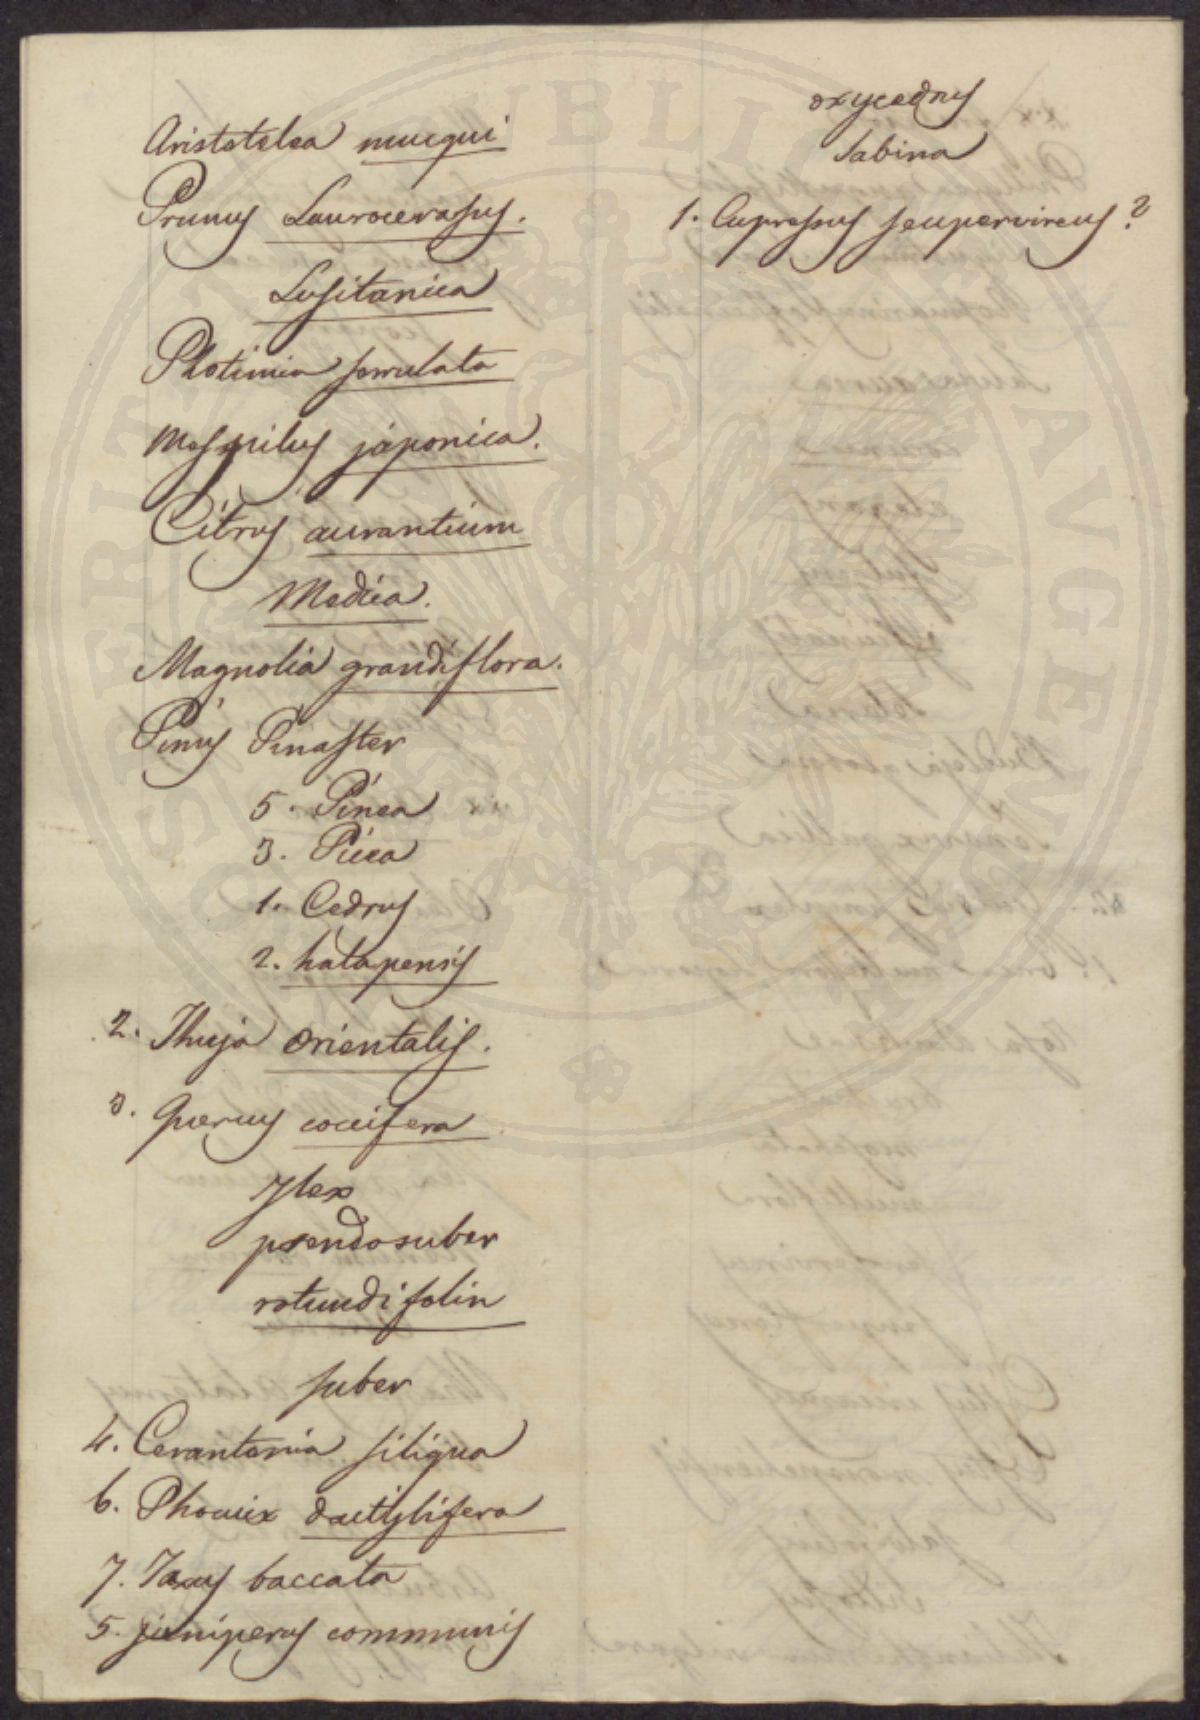 Aristotelea mucqui
Prunus Laurocerasus.
Lusitanica
Photinia serrulata
Mespilus japonica.
Citrus aurantium
Medica.
Magnolia grandiflora.
Pinus Pinaster
5. Pinea
3. Picea
1. Cedrus
2. halapensis
2. Thuja orientalis.
3. Quercus coccifera
Ylex
pseudosuber
rotundifolin
suber
4. Cerantonia siliqua
6. Phoenix dactylifera
7. Taxus baccata
5. juniperus communis
oxycedrus
Sabina
1. Cupressus sempervirens?